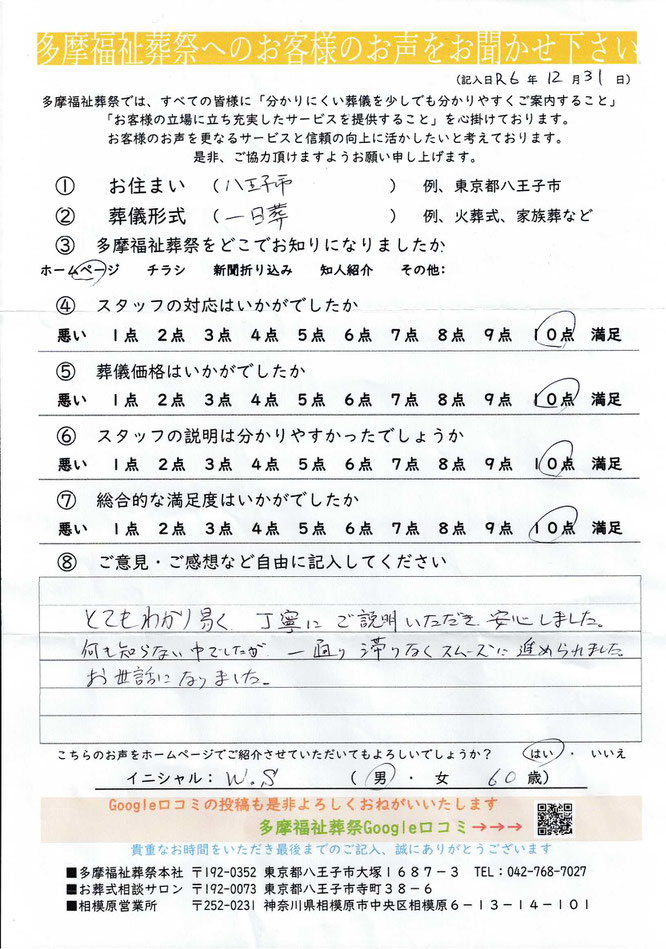 多摩福祉葬祭へのお客様のお声をお聞かせ下さい
(記入日R6 年 12 月 31 日)
多摩福祉葬祭では、すべての皆様に「分かりにくい葬儀を少しでも分かりやすくご案内すること」
「お客様の立場に立ち充実したサービスを提供すること」を心掛けております。
お客様のお声を更なるサービスと信頼の向上に活かしたいと考えております。
是非、ご協力頂けますようお願い申し上げます。
① お住まい (八王子市) 例、東京都八王子市
② 葬儀形式 (一日葬) 例、火葬式、家族葬など
③ 多摩福祉葬祭をどこでお知りになりましたか
ホームページ チラシ 新聞折り込み 知人紹介 その他:
④ スタッフの対応はいかがでしたか
悪い 1点 2点 3点 4点 5点 6点 7点 8点 9点 10点 満足
⑤ 葬儀価格はいかがでしたか
悪い 1点 2点 3点 4点 5点 6点 7点 8点 9点 10点 満足
⑥ スタッフの説明は分かりやすかったでしょうか
悪い 1点 2点 3点 4点 5点 6点 7点 8点 9点 10点 満足
⑦ 総合的な満足度はいかがでしたか
悪い 1点 2点 3点 4点 5点 6点 7点 8点 9点 10点 満足
⑧ ご意見・ご感想など自由に記入してください
とてもわかり易く、丁寧にご説明いただき安心しました。
何も知らない中でしたが、一通り滞りなくスムーズに進められました。
お世話になりました。
こちらのお声をホームページでご紹介させていただいてもよろしいでしょうか? はい・いいえ
イニシャル: W.S (男・女 60歳)
Google口コミの投稿も是非よろしくおねがいいたします
多摩福祉葬祭Google口コミ→→→
貴重なお時間をいただき最後までのご記入、誠にありがとうございます
■多摩福祉葬祭本社 〒192-0352 東京都八王子市大塚1687-3 TEL:042-768-7027
■お葬式相談サロン 〒192-0073 東京都八王子市寺町38-6
■相模原営業所 〒252-0231 神奈川県相模原市中央区相模原6-13-14-101